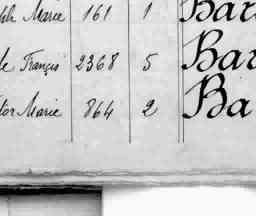 Marie 161 1 Bar
le François 2368 5 Bar
tor Marie 864 2 Ba